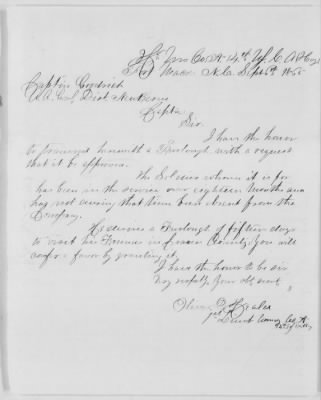 Hd Qrs Co. A 14th U.S. C. A
Sept 6th 1865
Captain Goodrich
A.A. Genl Dist
Capta
Sir
I have the honor
to transmit herewith a Furlough with a request
that it be approved.
The Soldier whom it is for
has been in the service over eighteen Months and
has not during that time been absent from the
Company.
He desires a Furlough of fifteen days
to visit his Friends in County. You will
confer a favor by granting it.
I have the honor to be sir
Very respctfly Your obt servt
1st Lieut Comdg Co. A